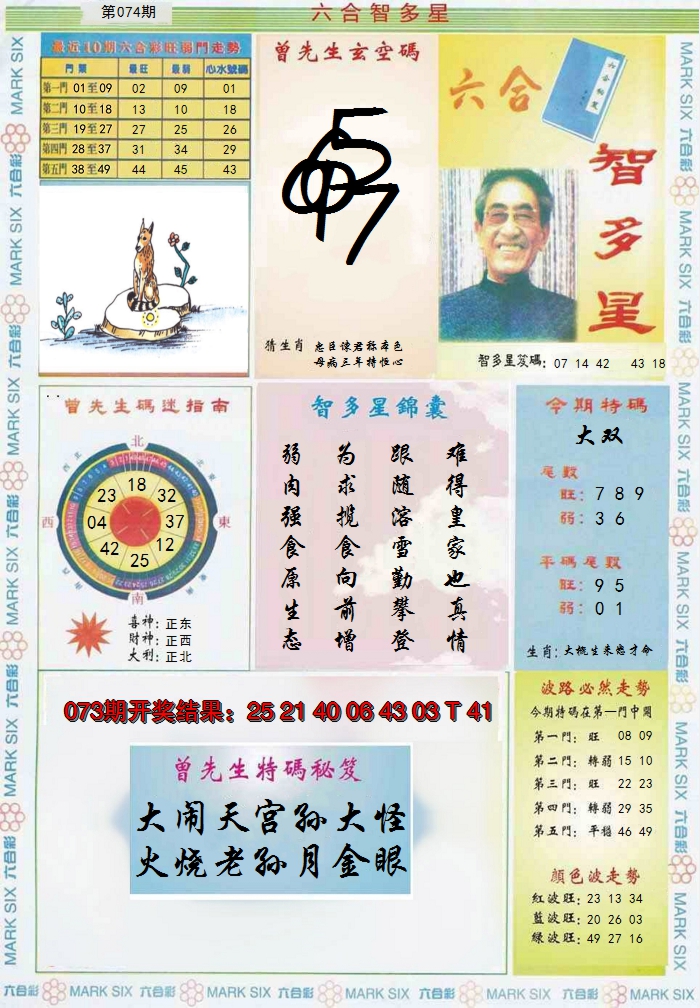 第074期
六合智多星
最近10期六合彩旺弱門走勢
門類 最旺 最弱 心水號碼
第一門 01至09 02 09 01
第二門 10至18 13 10 18
第三門 19至27 27 25 26
第四門 28至37 31 34 29
第五門 38至49 44 45 43
曾先生玄空碼
猜生肖 忠臣谏君称本色
母病三年持恒心
六合
六合秘笈
智多星
智多星笈碼: 07 14 42 43 18
曾先生碼迷指南
北
西北
東北
西
東
南
18
32
37
12
25
42
04
23
喜神: 正东
財神: 正西
大利: 正北
智多星錦囊
难得皇家也真情
跟随溶雪勤攀登
为求揽食向前增
弱肉强食原生态
今期特碼
大双
尾數
旺: 7 8 9
弱: 3 6
平碼尾數
旺: 9 5
弱: 0 1
生肖: 大概生来悲才命
073期开奖结果：25 21 40 06 43 03 T 41
曾先生特碼秘笈
大闹天宫孙大怪
火烧老孙月金眼
波路必然走勢
今期特碼在第一門中開
第一門: 旺 08 09
第二門: 轉弱 15 10
第三門: 旺 22 23
第四門: 轉弱 29 35
第五門: 平穩 46 49
顏色波走勢
紅波旺: 23 13 34
藍波旺: 20 26 03
綠波旺: 49 27 16
MARK SIX 六合彩